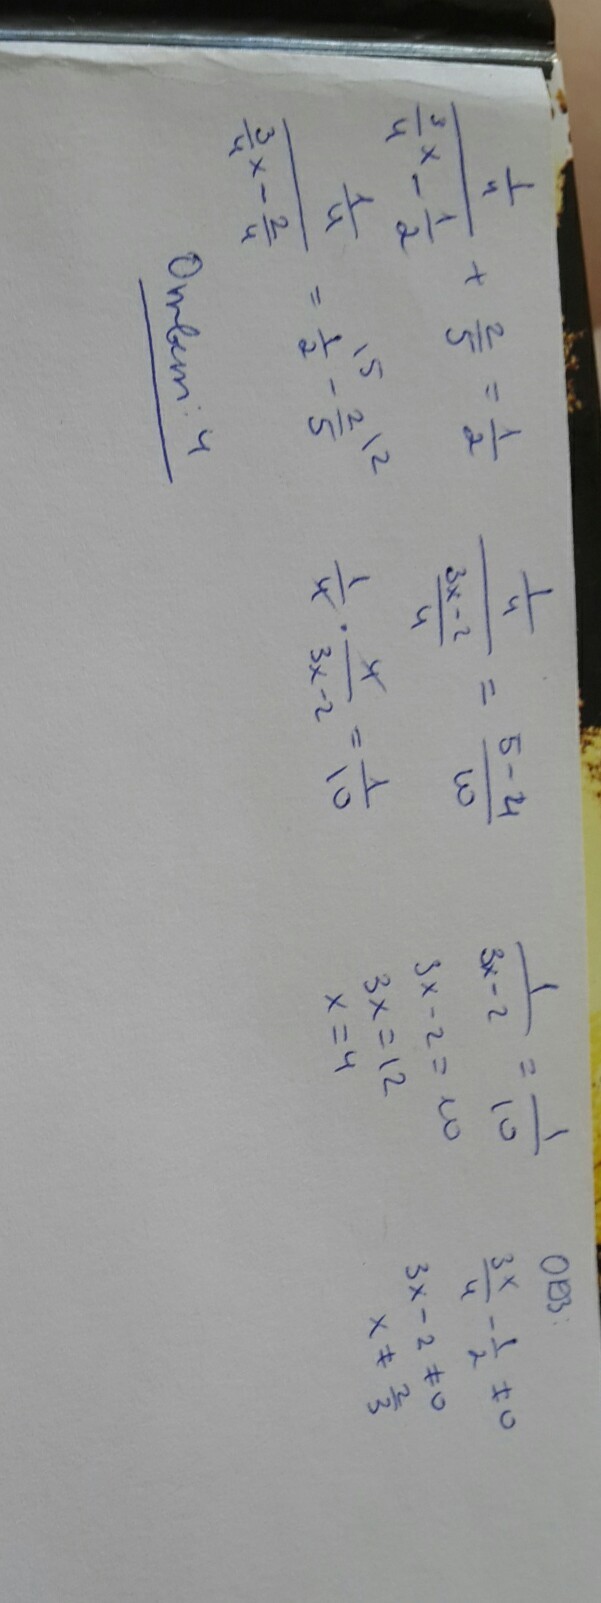 (1/4)/(3/4 x - 1/2) + 2/5 = 1/2
(1/4)/(3/4 x - 2/4) = 1/2 \15 - 2/5 \12
Ответ: 4
(1/4)/((3x-2)/4) = (5-4)/10
1/4 · 4/(3x-2) = 1/10
1/(3x-2) = 1/10
3x-2=10
3x=12
x=4
ОДЗ:
3x/4 - 1/2 ≠0
3x-2≠0
x≠ 2/3